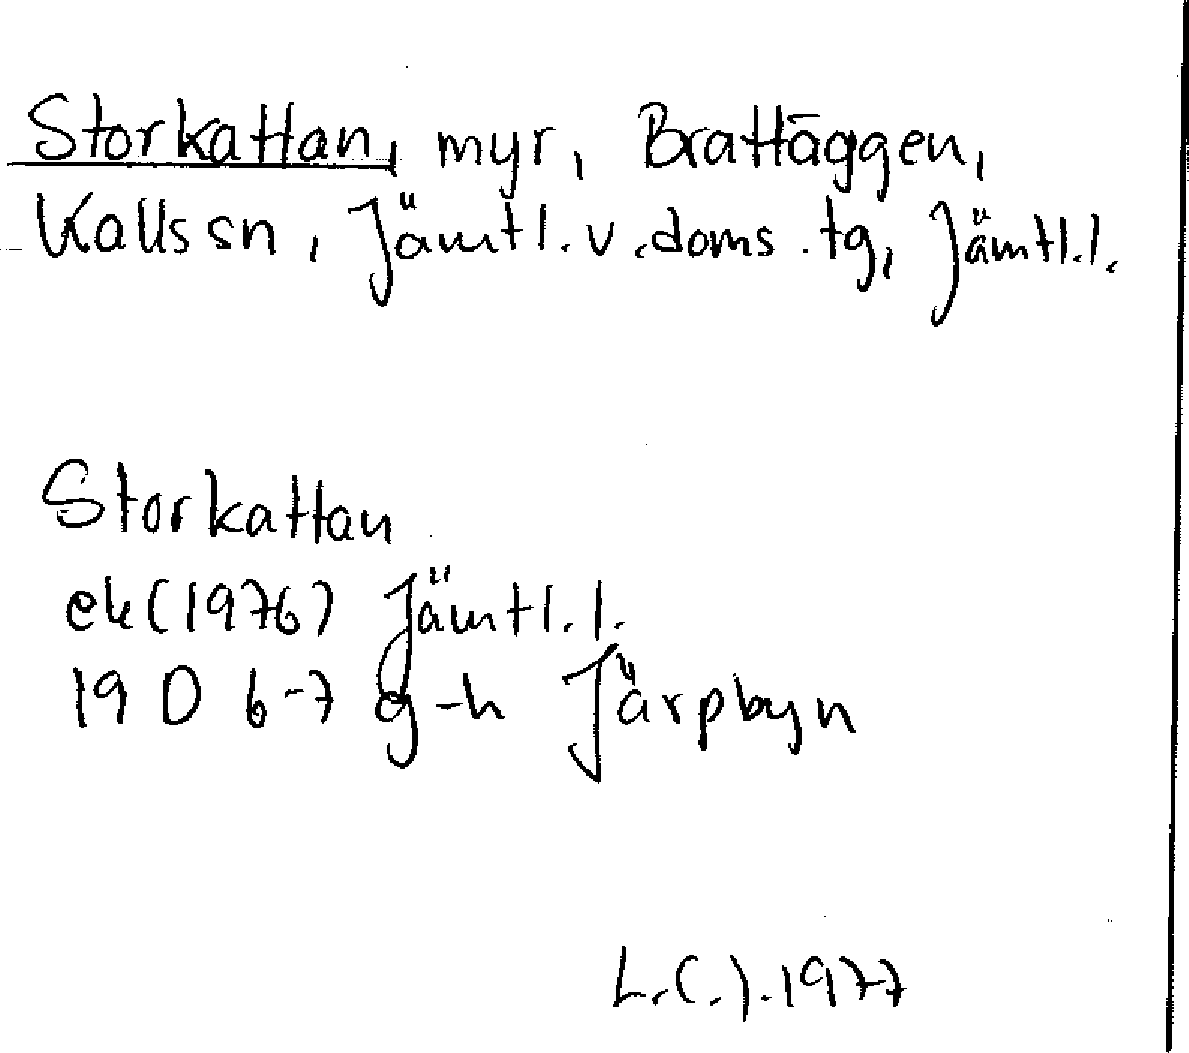 Storkattan, myr, Brattäggen,
Kalls sn, Jämtl. v. doms. tg, Jämtl. l.
Storkattan
ek (1976) Jämtl. l.
19 D 6-7 g-h Järpbyn
L.C.J. 1977